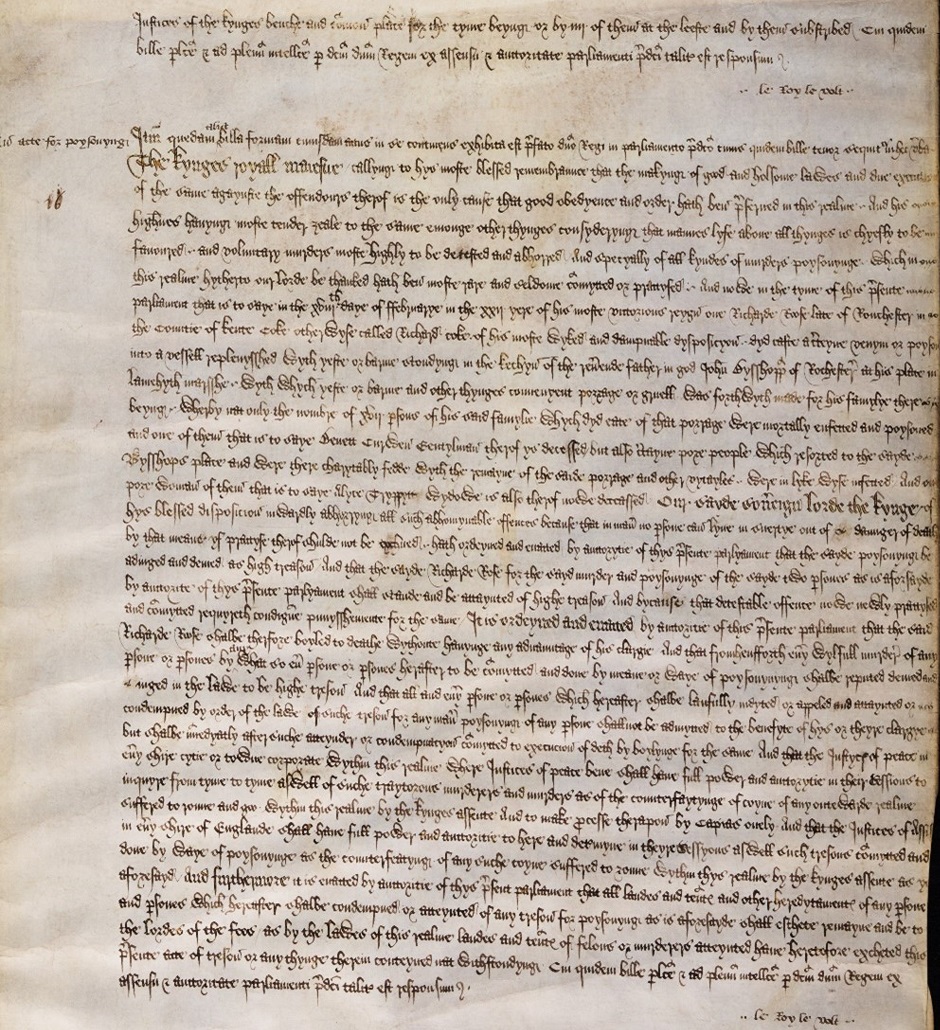 Justices of the kynges benche and cōmon place for the tyme beyng or by iiij of them at the leeste and by them subscribed Cui quidem
bille plect & ad plenū intellcē p dcm dnm Regem ex assensu & auctoritate parliamenti pdcti taliter est responsum
le Roy le volt
acte for poysonyng
Itm quedam alia billa formam cuiusdam actus in se continens exhibita est pfato dno Regi in parliamento pdcto cuius quidem bille tenor sequitur in hec vba
The Kynges royall maiestie callyng to hys moste blessed remembraunce that the makyng of good and holsome lawes and due execucion
of the same agaynste the offendours therof is the only cause that good obedyence and order hath ben pserued in this realme And his
highnes hauyng moste tender zeale to the same emonge other thynges consyderyng that mannes lyfe above all thynges is chyefly to be
favoured and voluntary murders moste highly to be detested and abhorred And specyally of all kyndes of murders poysonynge Which in
this realme hytherto our lorde be thanked hath ben moste rare and seldome cōmytted or practysed And nowe in the tyme of this psente
parliament that is to saye in the xviijth daye of ffebruarye in the xxij yere of his moste victorious reygn one Richarde Roose late of Rouchester in
the Countie of kente Coke otherwyse called Richard coke of his moste wyked and dampnable dysposicyon dyd caste a cteyne venym or poyson
into a vessell replenysshed wyth yeste or barme stondyng in the kechyn of the reuende father in god John Bysshopp of Rochester at his place in
lamehyth marsshe wyth whych yeste or barme and other thynges convenyent porrage or gruell was forthwyth made for his famylye there
beyng Wherby nat only the nombre of xvij psons of his said famylie whych dyd eate of that porrage were mortally enfected and poysoned
and one of them that is to saye Benett Curwen Gentylman therof ys decessed but also cteyne pore people which resorted to the sayde
Bysshops place and were there charytably fedde wyth the remayne of the saide porrage and other vytayles were in lyke wyse infected And
pore woman of them that is to saye Alyce Tryppytt wydowe is also therof nowe deceassed Our sayde soueign lorde the kynge of
hys blessed disposicion inwardly abhorryng all such abhomynable offences because that in man no psone can lyve in suertye out of daunger of death
by that meane yf practyse therof shulde not be exchued hath ordeyned and enacted by auctorytie of thys psente parlyament that the sayde poysonyng be
adiuged and demed as high treason And that the sayde Richarde Rose for the sayd murder and poysonynge of the sayde two psones as is aforsayde
by auctorite of thys psente parlyament shall stande and be attaynted of highe treason And bycause that detestable offence nowe newly practysed
and cōmytted requyreth condigne punysshemente for the same It is ordeyned and enacted by auctoritie of this psente parliament that the said
Richarde Rose shalbe therfore boyled to deathe wythoute hauynge any advauntage of his clargie And that fromhensforth euy wylfull murder of any
psone or psones by any what so eu psone or psones herafter to be cōmytted and done by meane or waye of poysonynge shalbe reputed demed and
iuged in the lawe to be highe treson And that all and euy psone or psones which hereafter shalbe laufully indyted or appeled and attaynted or
condempned by order of the lawe of suche treson for any man poysonyng of any psone shall not be admytted to the benefyte of hys or theyre clargye
but shalbe immedyatly after suche atteynder or condempnatyon cōmytted to execucion of deth by boylynge for the same And that the Justyces of peace in
euy shire cytie or towne corporate wythin this realme where Justices of peace bene shall have full power and auctorytie in their sessions to
inquyre from tyme to tyme aswell of suche traytorous murderers and murders as of the counterfaytynge of coyne of any outewarde realme
suffered to ronne and goo wythin this realme by the kynges assente And to make pcesse therapon by Capias onely And that the Justices of Assis
in euy shire of Englande shall have full power and auctoritie to here and detmyne in theyre sessyons aswell such tresons cōmytted and
done by waye of poysonynge as the counterfeatyng of any suche coyne suffered to ronne wythyn thys realme by the kynges assente as ys
aforesayd And furthermore it is enacted by auctoritie of thys psent parliament that all landes and tents and other heredytaments of any psone
and psones which hereafter shalbe condempned or atteynted of any treson for poysonyng as is aforesaide shall eschete remayne and be to
the lordes of the fees as by the lawes of this realme landes and tents of felons or murderers atteynted have heretofore excheted this
psente acte of treson or any thynge therein conteyned nat withstondyng Cui quidem bille plcte & ad plenū intellcē p dcm dnm Regem ex
assensu & auctoritate parliamenti pdcti taliter est responsum
le Roy le volt